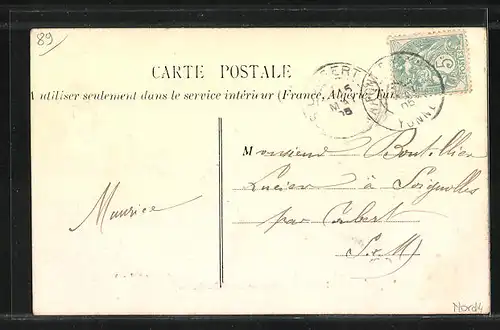 89
CARTE POSTALE
A utiliser seulement dans le service intérieur (France, Algérie, Tun
5
YONNE
BERT
5
05
Monsieur Boutillier
Lucien à Soignolles
par Coubert
S-&-M)
Maurice
Nord4